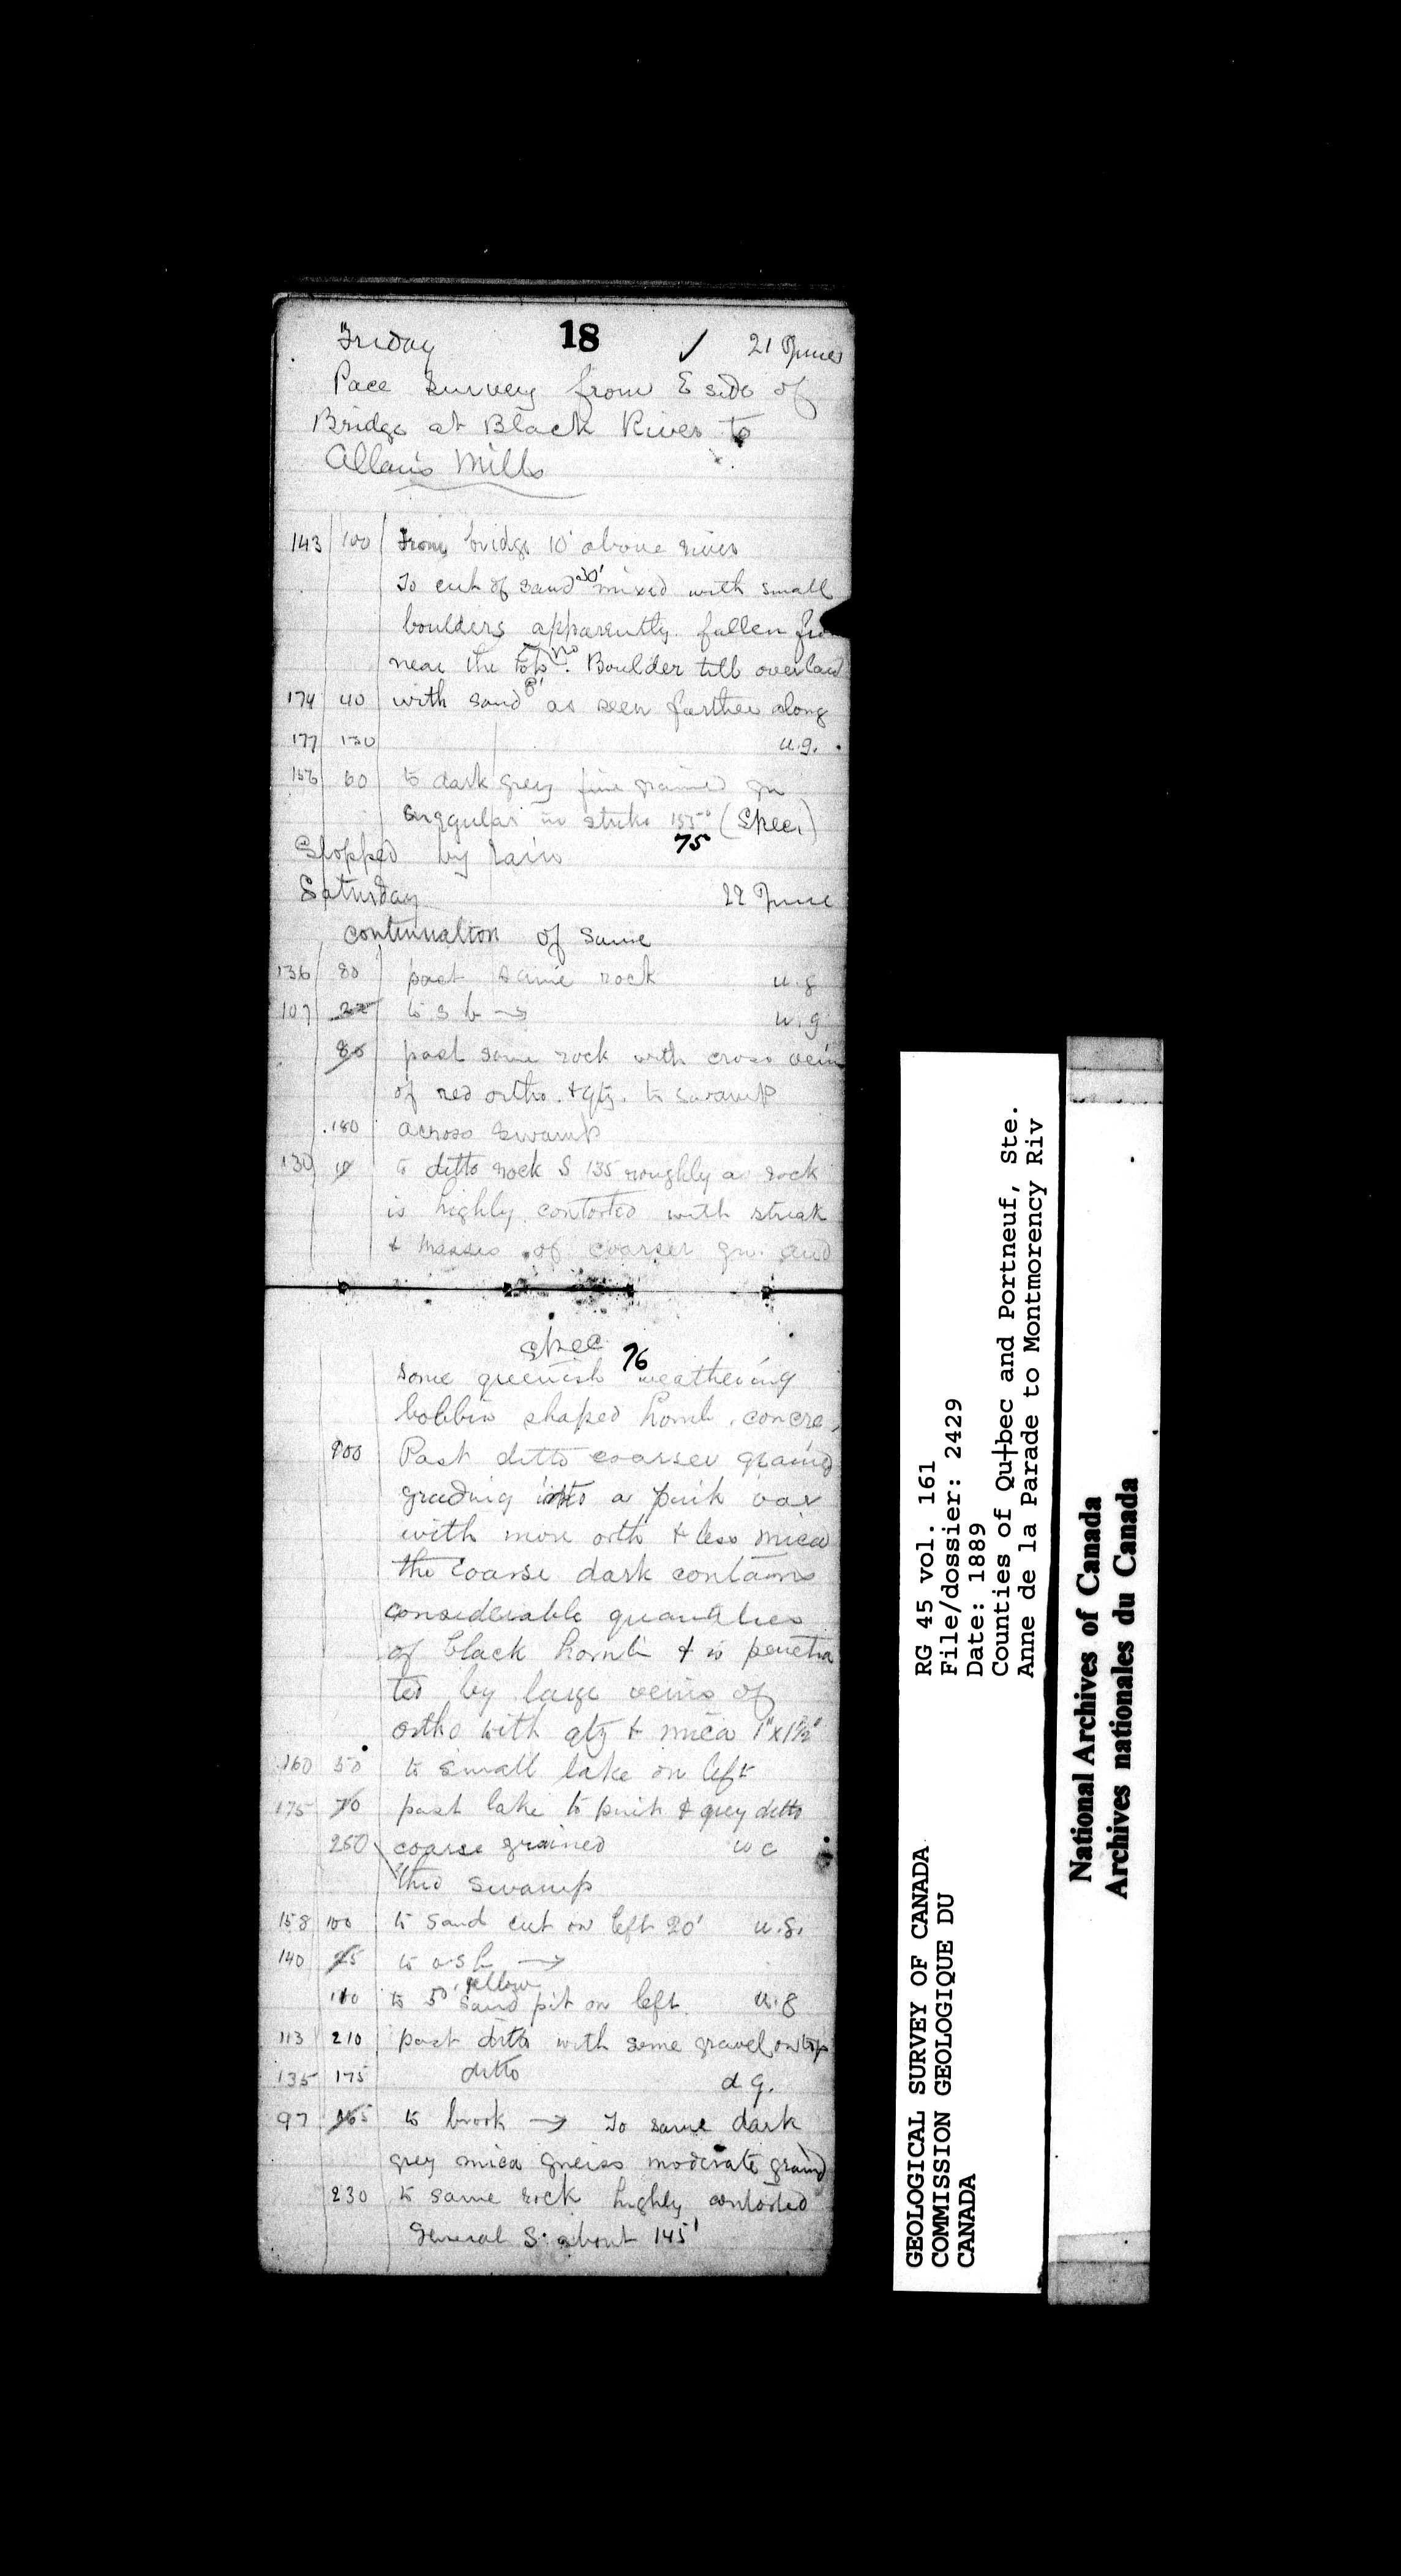 18
Friday ✓ 21 June
Pace Survey from E side of
Bridge at Black River to
Allan's Mills
143 100 From bridge 10' above river
To cut of sand 30' mixed with small
boulders apparently fallen from
near the top no. Boulder till overlaid
174 40 with sand 8' as seen further along
177 130 u.g.
156 60 to dark grey fine grained gn
irregular in strike 155° (Spec.)
75
Stopped by rain
Saturday 22 June
continuation of same
136 80 past same rock u.g
107 to s b → u.g
80 past same rock with cross vein
of red ortho. + qtz. to swamp
180 across swamp
130 10 to ditto rock S 135 roughly as rock
is highly contorted with streak
& masses of coarser gn. and
spec 76
some greenish weathering
bobbin shaped hornb. concre,
100 Past ditto coarser grained
grading into a pink var
with more orth & less mica
the coarse dark contains
considerable quantities
of black hornb & is penetra
ted by large veins of
ortho with qtz & mica 1"x1½"
160 50 to small lake on left
175 70 past lake to pink & grey ditto
250 coarse grained u c
thro swamp
158 100 to sand cut on left 20' u.g.
140 25 to a s b →
110 to 50' yellow sand pit on left. u.g
113 210 past ditto with some gravel on top
135 175 ditto d g.
97 165 to brook → To same dark
grey mica gneiss moderate graind
230 to same rock highly contorted
General S. about 145'
GEOLOGICAL SURVEY OF CANADA
COMMISSION GEOLOGIQUE DU
CANADA
RG 45 vol. 161
File/dossier: 2429
Date: 1889
Counties of Qu†bec and Portneuf, Ste.
Anne de la Parade to Montmorency Riv
National Archives of Canada
Archives nationales du Canada